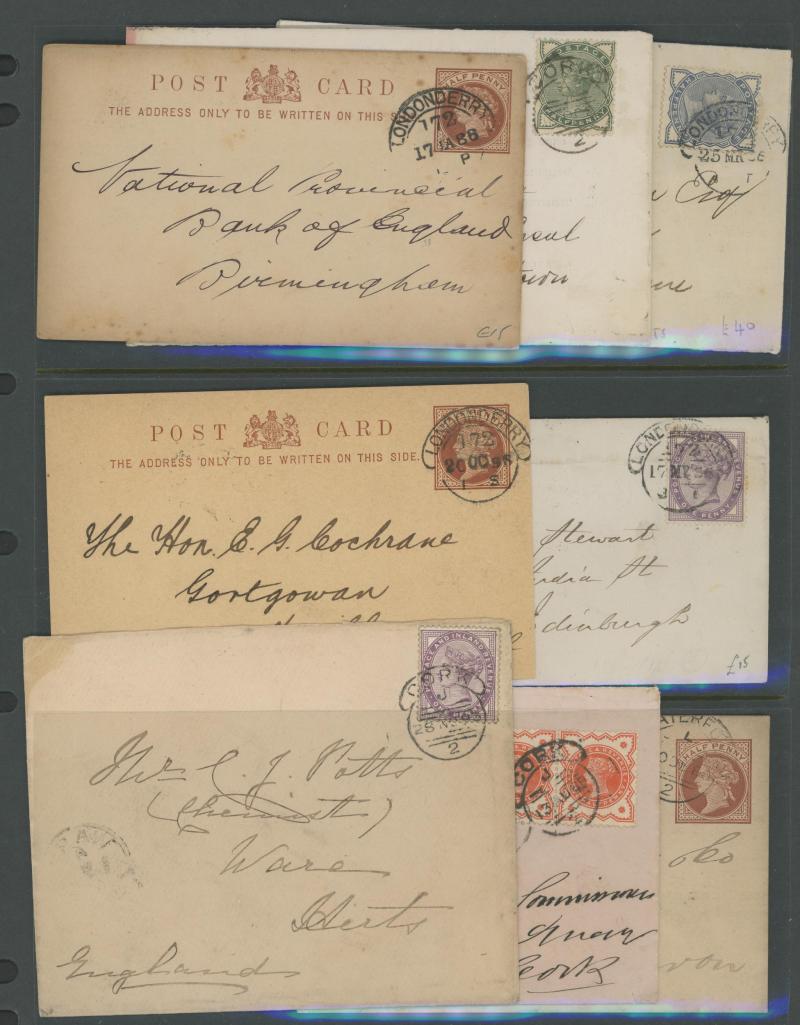 POST CARD
THE ADDRESS ONLY TO BE WRITTEN ON THIS S
HALF PENNY
LONDONDERRY
172
17 JA 88
P
National Provincial
Bank of England
Birmingham
£15
POSTAGE
HALFPENNY
CORK
2
LONDONDERRY
25 MR
Esq
£40
POST CARD
THE ADDRESS ONLY TO BE WRITTEN ON THIS SIDE.
LONDONDERRY
172
20 OC 96
1 S
The Hon. E. G. Cochrane
Gortgowan
LONDONDERRY
17 MR 86
ONE PENNY
Stewart
India St
Edinburgh
£15
POSTAGE AND INLAND REVENUE
CORK
J
2
Mr C. J. Potts
(Chemist)
Ware
Herts
England
CORK
Commissioners
Quay
Cork
WATERFO
L
2
HALF PENNY
von